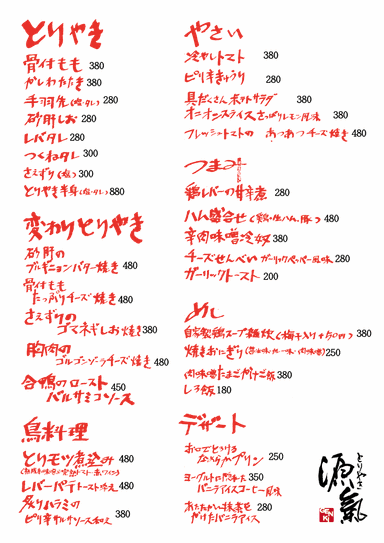 とりやき
骨付もも 380
かしわたたき 380
手羽先(塩・タレ) 280
砂肝しお 280
レバタレ 280
つくねタレ 300
さえずり(塩) 300
とりやき半身(塩・タレ) 880
変わりとりやき
砂肝の
ブルギニョンバター焼き 480
骨付もも
たっぷりチーズ焼き 480
さえずりの
ゴマネギしお焼き 380
胸肉の
ゴルゴンゾーラチーズ焼き 480
合鴨のロースト 450
バルサミコソース
鳥料理
とりモツ煮込み 480
レバーパテ トースト添え 480
炙りハラミの
ピリ辛サルサソース和え 380
やさい
冷やしトマト 380
ピリ辛きゅうり 280
具だくさんポテトサラダ 380
オニオンスライス さっぱりレモン風味 380
フレッシュトマトの あつあつチーズ焼き 480
つまみ
鶏レバーの甘辛煮 280
ハム盛合せ(鶏・生ハム、豚) 480
辛肉味噌冷奴 380
チーズせんべい ガーリックペッパー風味 280
ガーリックトースト 200
めし
自家製鶏スープ雑炊(梅干入り+50円) 380
焼きおにぎり 250
肉味噌たまごかけご飯 380
しろ飯 180
デザート
お口でとろける
なめらかプリン 250
ヨーグルトに隠れた 350
バニラアイスコーヒー風味
あたたかい抹茶を 280
かけたバニラアイス
とりやき
源氣